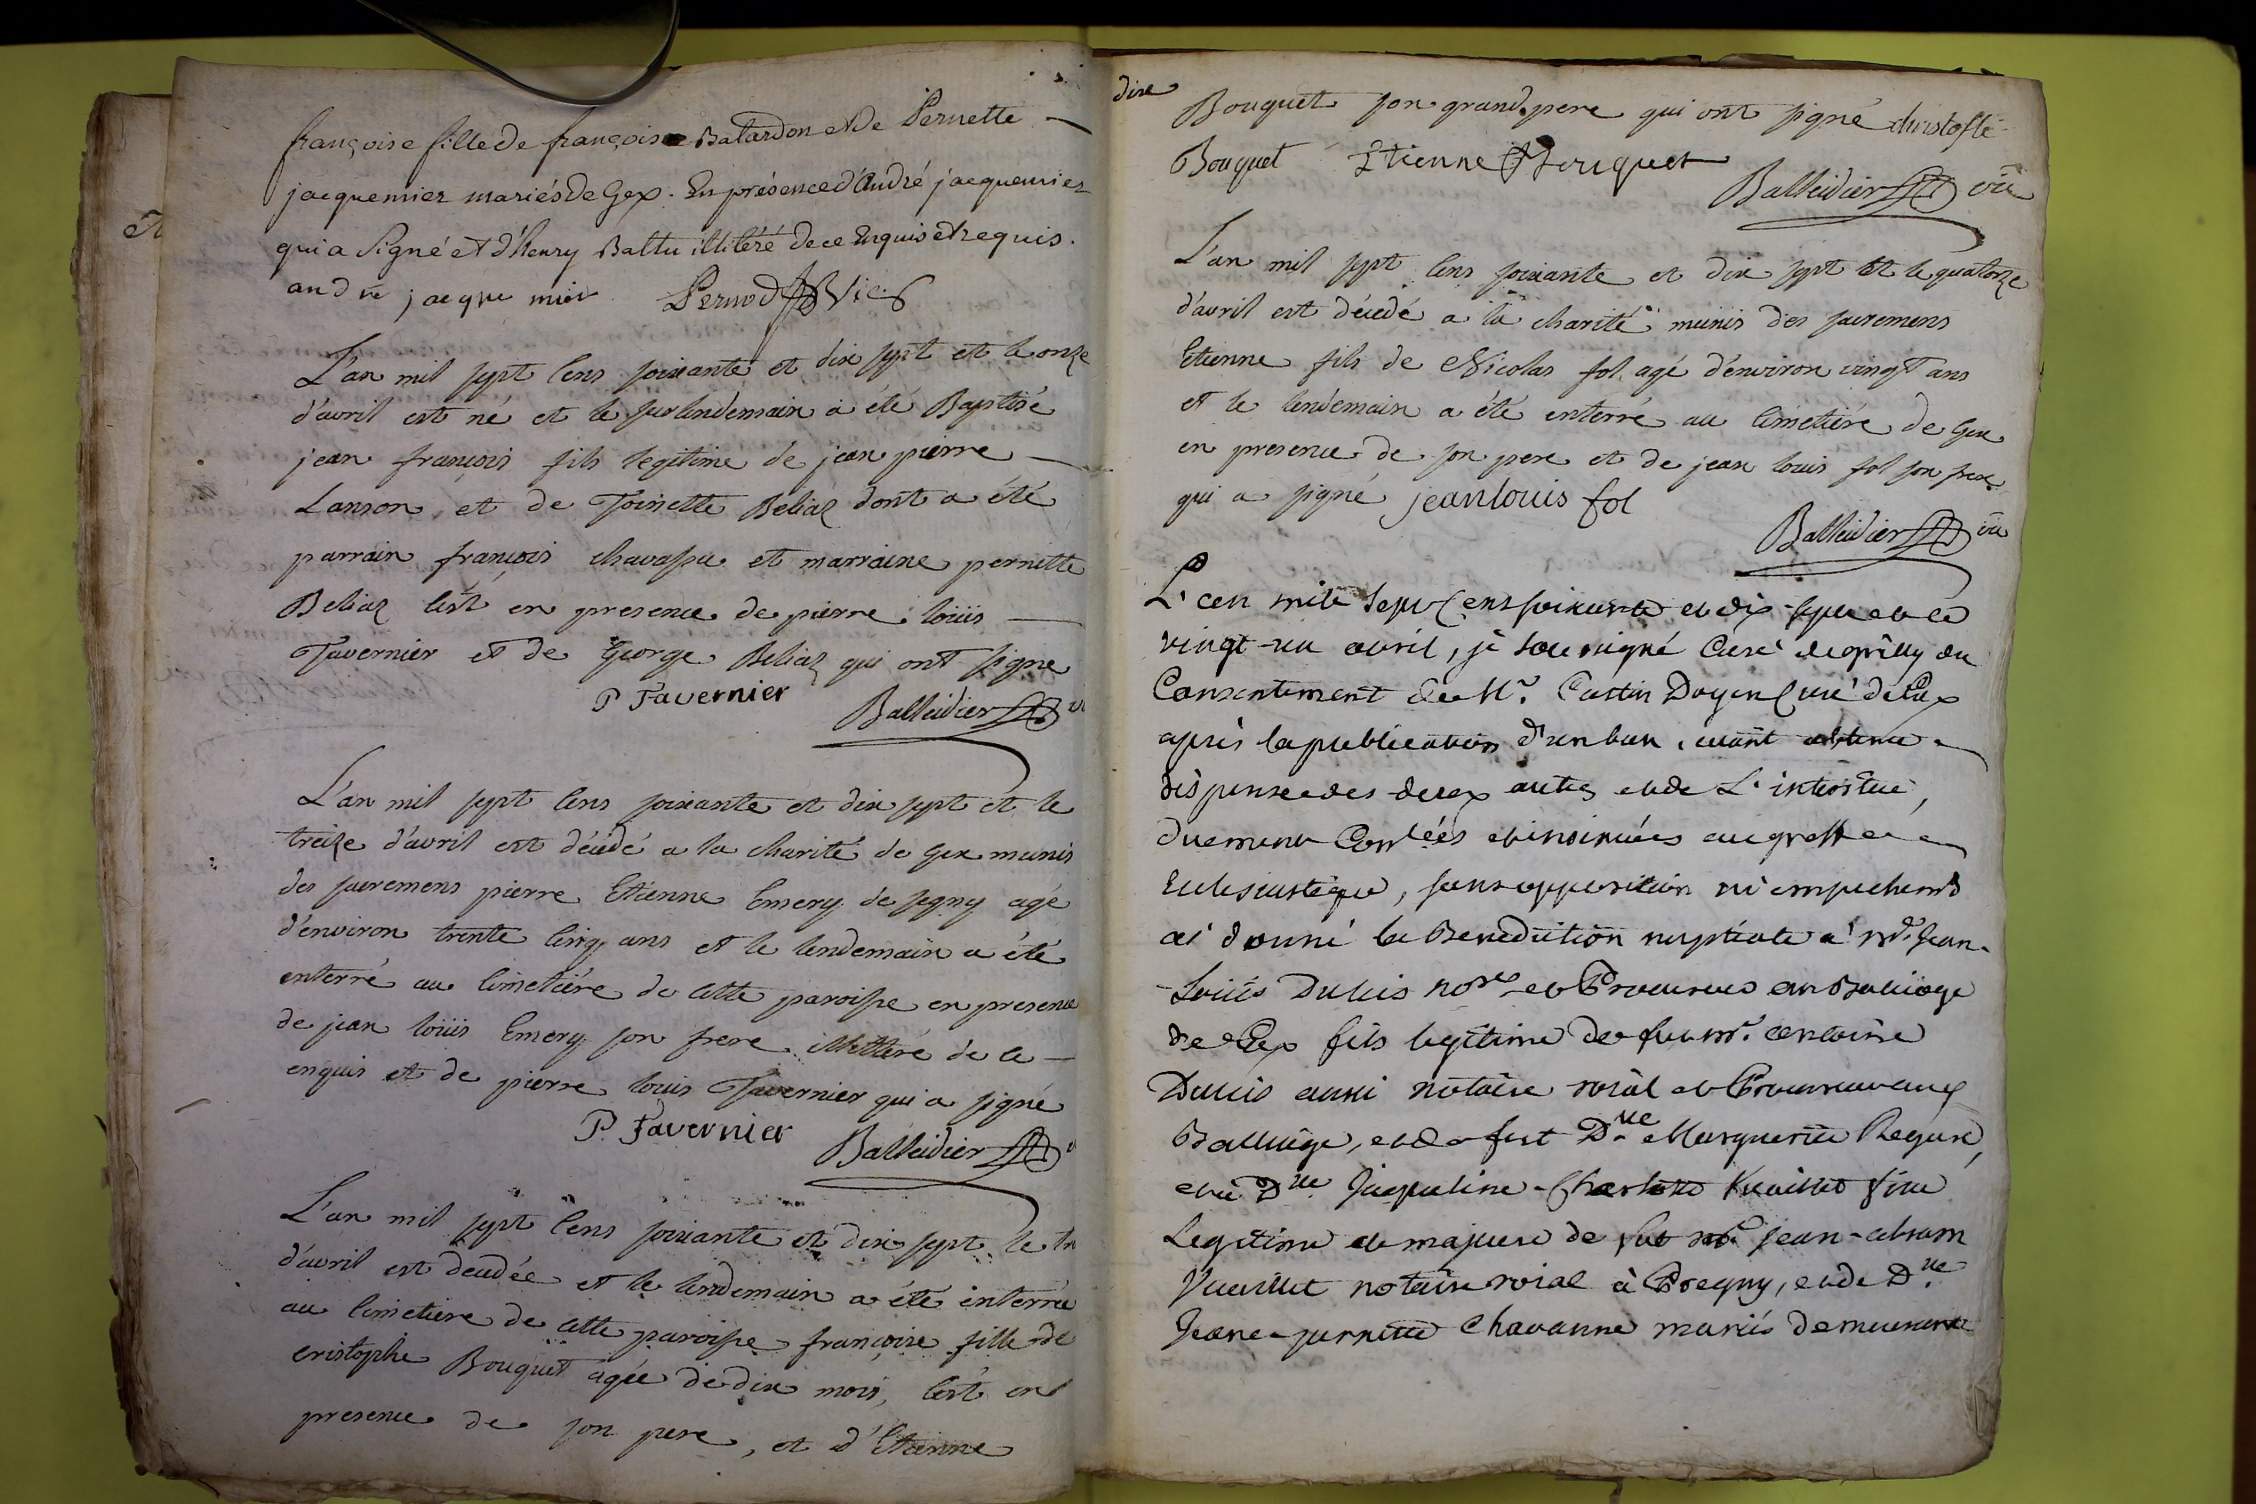 françoise fille de françois Batardon et de Pernette
jacquemier mariés de Gex. En présence d'André jacquemier
qui a signé et d'henry Battu illiteré de ce Enquis et requis.
andré jacque mier Pernod Vic.
L'an mil sept cens soixante et dix sept et le onze
d'avril est né et le surlendemain a été Baptisé
jean françois fils legitime de jean pierre
Lanson et de Toinette Beliaz dont a été
parrain françois chavassu et marraine pernette
Beliaz c'est en presence de pierre loüis
Tavernier et de George Beliaz qui ont signe
P Tavernier Balleidier
L'an mil sept cens soixante et dix sept et le
treize d'avril est décédé a la charité de Gex munis
des sacremens pierre Etienne Emery de segny agé
d'environ trente cinq ans et le lendemain a été
enterré au cimetiére de cette paroisse en presence
de jean loüis Emery son frere illettéré de ce
enquis et de pierre louis Tavernier qui a signé
P. Tavernier Balleidier
L'an mil sept cens soixante et dix sept le
d'avril est decedée et le lendemain a été enterrée
au cimetiere de cette paroisse françoise fille de
cristophe Bouquet agée de dix mois, c'est en
presence de son pere, et d'Etienne
dix
Bouquet son grand pere qui ont signé christofle
Bouquet Etienne Bouquet
Balleidier vic
L'an mil sept cens soixante et dix sept et le quatorze
d'avril est décedé a la charité munis des sacremens
Etienne fils de Nicolas fol agé d'environ vingt ans
et le lendemain a été enterré au cimetiére de Gex
en presence de son pere et de jean louis fol son frere
qui a signé jean louis fol
Balleidier vic
L'an mil sept cens soixante et dix-sept et le
vingt-un avril, je soussigné Curé de grilly du
Consentement de Mr. Castin Doyen Curé de Gex
après la publication d'un ban, aiant obtenu
dispense des deux autres et de L'interstice,
duement Conrlées et insinuées au greffe
Ecclesiastique, sans opposition ni empechemt
ai donné la Benediction nuptiale a Mr. Jean-
Loüis Duluis nore et Procureur au Bailliage
de Gex fils legitime de feu mr. antoine
Duluis aussi notaire roial et Procureur auxd
Bailliage, et de fest Dlle Marguerite Regard,
et à Dlle Jaqueline-Charlotte Vuaillet fille
Legitime et majeure de feu mr. jean-abram
Vuaillet notaire roial à Pregny, et de Dlle
Jeane-pernette Chavanne mariés demeurant